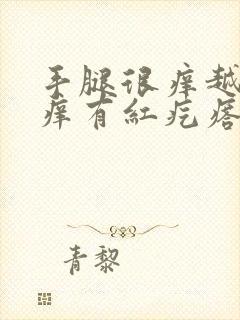 手腿很痒越
痒有紅疙瘩
青黎